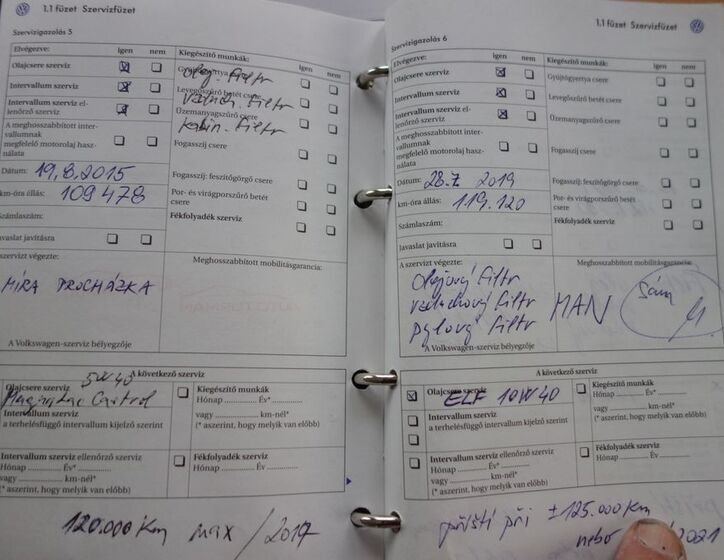 1.1 füzet Szervizfüzet
Szervizigazolás 5
Elvégezve: igen nem
Olajcsere szerviz
Intervallum szerviz
Intervallum szerviz el-
lenőrző szerviz
A meghosszabbított inter-
vallumnak
megfelelő motorolaj hasz-
nálata
Dátum: 19.8.2015
km-óra állás: 109478
Számlaszám:
Javaslat javításra
Kiegészítő munkák: igen nem
Gyújtógyertya csere
olej. filtr
Levegőszűrő betét csere
vzduch. filtr
Üzemanyagszűrő csere
kabin. filtr
Fogasszíj csere
Fogasszíj: feszítőgörgő csere
Por- és virágporszűrő betét
csere
Fékfolyadék szerviz
A szervizt végezte:
MÍRA PROCHÁZKA
Meghosszabbított mobilitásgarancia:
A Volkswagen-szerviz bélyegzője
A következő szerviz
5W40
Olajcsere szerviz
Magnatec Castrol
Intervallum szerviz
a terhelésfüggő intervallum kijelző szerint
Intervallum szerviz ellenőrző szerviz
Hónap Év*
vagy km-nél*
(* aszerint, hogy melyik van előbb)
Kiegészítő munkák
Hónap Év*
vagy km-nél*
(* aszerint, hogy melyik van előbb)
Fékfolyadék szerviz
Hónap Év
120.000 km max / 2017
1.1 füzet Szervizfüzet
Szervizigazolás 6
Elvégezve: igen nem
Olajcsere szerviz
Intervallum szerviz
Intervallum szerviz el-
lenőrző szerviz
A meghosszabbított inter-
vallumnak
megfelelő motorolaj hasz-
nálata
Dátum: 28.7. 2019
km-óra állás: 119.120
Számlaszám:
Javaslat javításra
Kiegészítő munkák: igen nem
Gyújtógyertya csere
Levegőszűrő betét csere
Üzemanyagszűrő csere
Fogasszíj csere
Fogasszíj: feszítőgörgő csere
Por- és virágporszűrő betét
csere
Fékfolyadék szerviz
A szervizt végezte:
Olejový filtr
vzduchový filtr
pylový filtr
MANN
Meghosszabbított mobilitásgarancia:
Sám
A Volkswagen-szerviz bélyegzője
A következő szerviz
Olajcsere szerviz
ELF 10W40
Intervallum szerviz
a terhelésfüggő intervallum kijelző szerint
Intervallum szerviz ellenőrző szerviz
Hónap Év*
vagy km-nél*
(* aszerint, hogy melyik van előbb)
Kiegészítő munkák
Hónap Év*
vagy km-nél*
(* aszerint, hogy melyik van előbb)
Fékfolyadék szerviz
Hónap Év
příští při ±125.000 km
nebo 2021